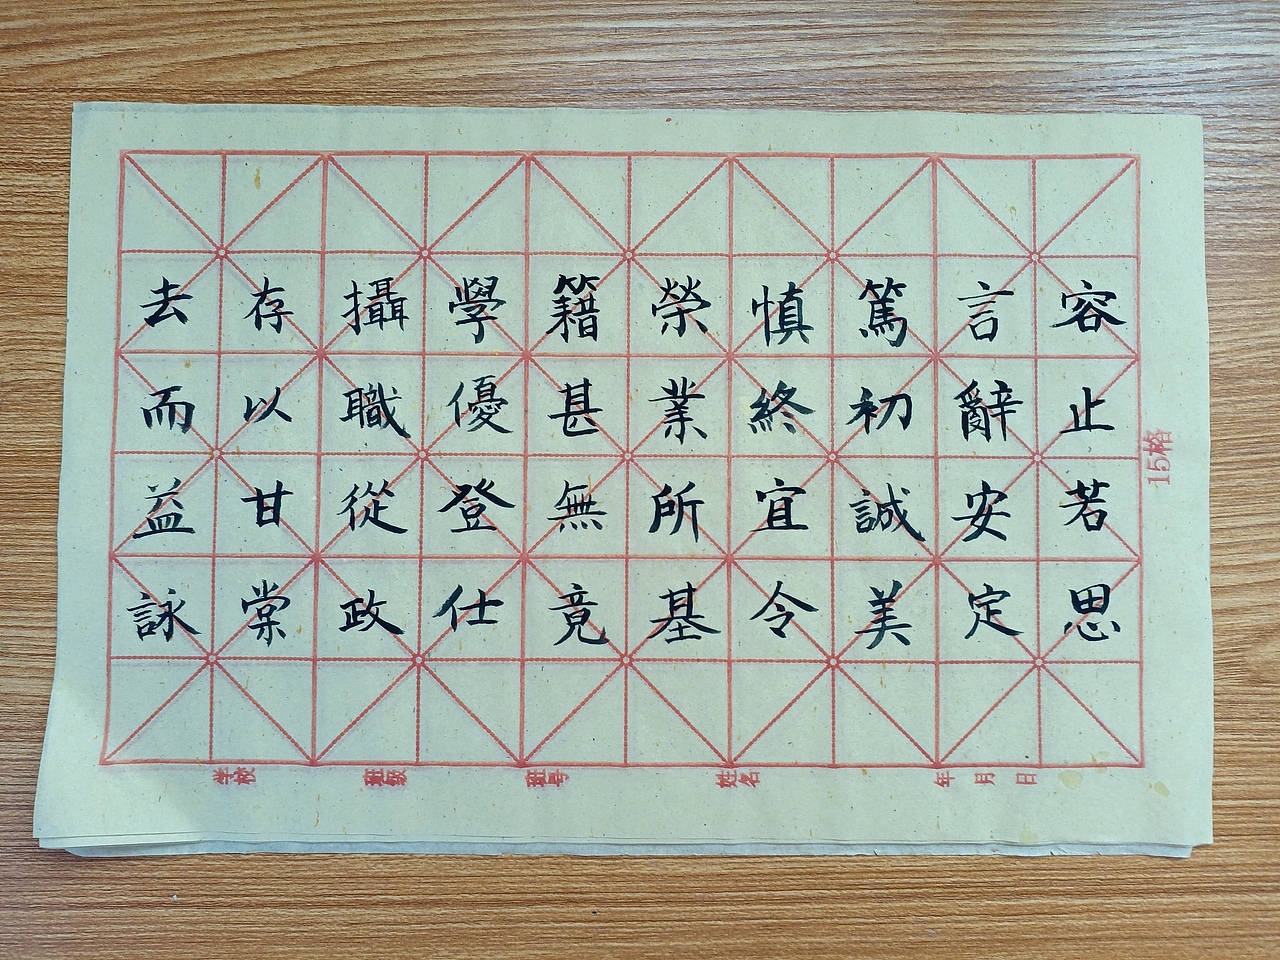 容止若思
言辭安定
篤初誠美
慎終宜令
榮業所基
籍甚無竟
學優登仕
攝職從政
存以甘棠
去而益詠
15格
学校 班级 班号 姓名 年 月 日